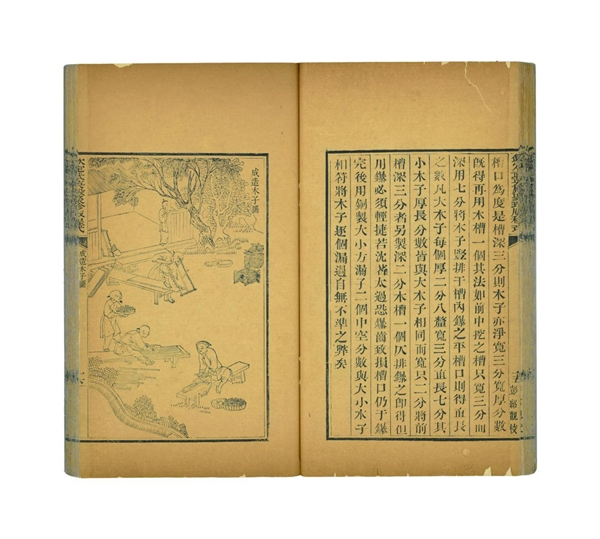 槽口為度是槽深三分則木子亦淨寬三分寬厚分數
既得再用木槽一個其法如前中挖之槽只寬三分而
深用七分將木子豎排于槽內鎊之平槽口則得直長
之數凡大木子每個厚二分八釐寬三分直長七分其
小木子厚長分數皆與大木子相同而寬只二分將前
槽深三分者另製深二分木槽一個仄排鎊之即得但
用鎊必須輕捷若沈著太過恐鎊齒致損槽口仍于鎊
完後用銅製大小方漏子二個中空分數與大小木子
相符將木子逐個漏過自無不準之弊矣
彭紹觀校
成造木子圖
成造木子圖